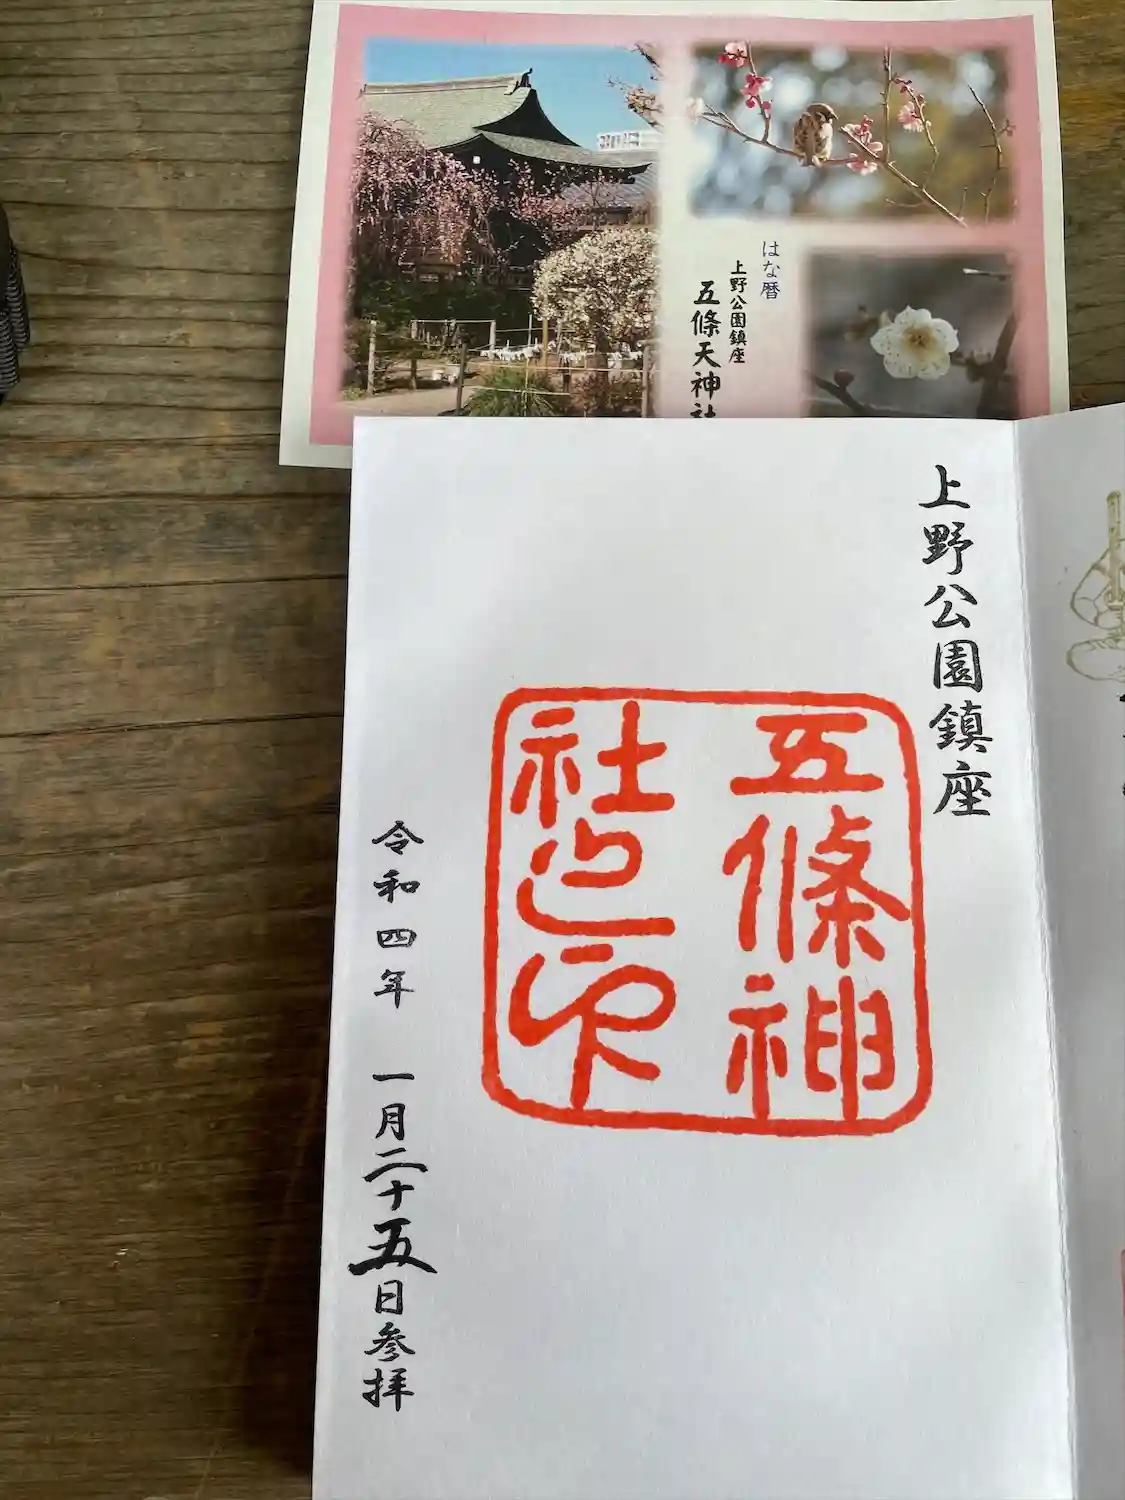 はな暦
上野公園鎮座
五條天神社
上野公園鎮座
五條神
社之印
令和四年 一月二十五日参拝